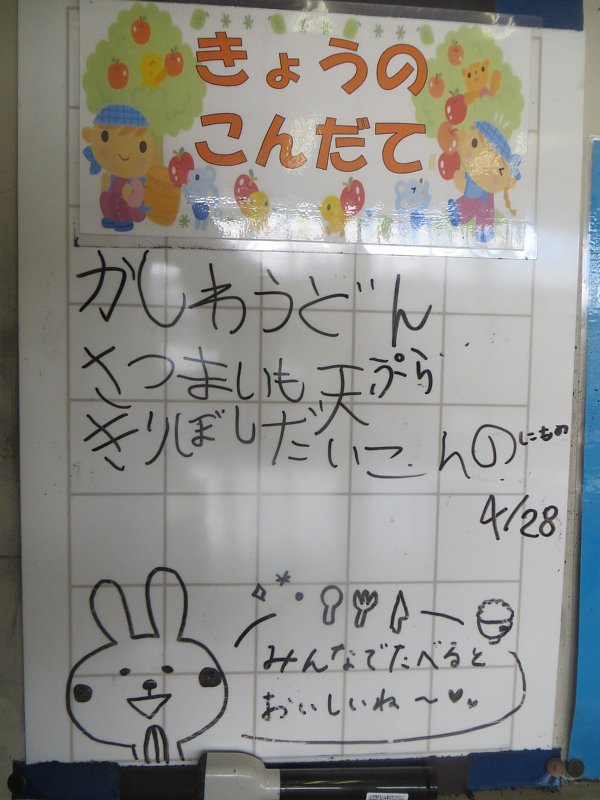 きょうの
こんだて
かしわうどん
さつまいも天ぷら
きりぼしだいこんのにもの
4/28
みんなでたべると
おいしいね〜♥♥